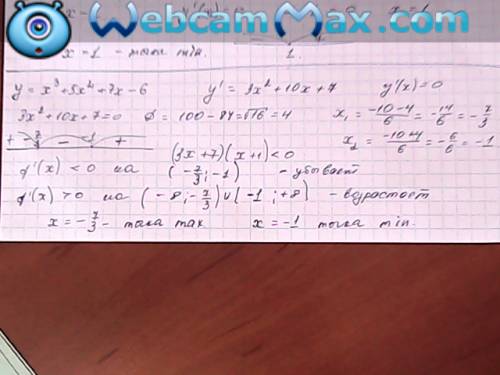 WebcamMax.com
x = 1 - точка min.
1.
y = x³ + 5x² + 7x - 6   y' = 3x² + 10x + 7   y'(x) = 0
3x² + 10x + 7 = 0   D = 100 - 84 = √16 = 4   x₁ = (-10-4)/6 = -14/6 = -7/3
+ -7/3 - -1 +   x₂ = (-10+4)/6 = -6/6 = -1
(3x+7)(x+1) < 0
f'(x) < 0 на (-7/3; -1) - убывает
f'(x) > 0 на (-8; -7/3) ∪ (-1; +8) - возрастает
x = -7/3 - точка max   x = -1 точка min.